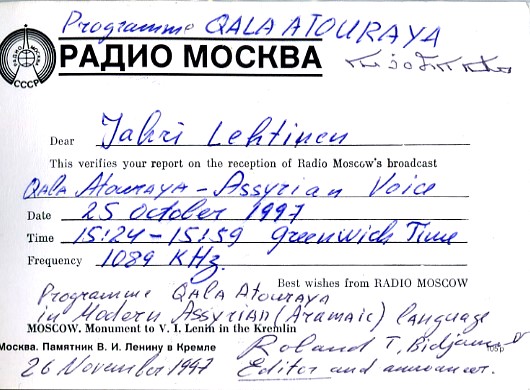 Programme QALA ATOURAYA
РАДИО МОСКВА
РАДИО МОСКВА
СССР
Dear Jahri Lehtinen
This verifies your report on the reception of Radio Moscow's broadcast
QALA ATOURAYA - ASSYRIAN Voice
Date 25 October 1997
Time 15:24-15:59 Greenwich Time
Frequency 1089 KHz.
Best wishes from RADIO MOSCOW
Programme QALA Atouraya
in Modern Assyrian (Aramaic) language
MOSCOW. Monument to V. I. Lenin in the Kremlin
Москва. Памятник В. И. Ленину в Кремле
Roland T. Bidjamov
26 November 1997
Editor and announcer.